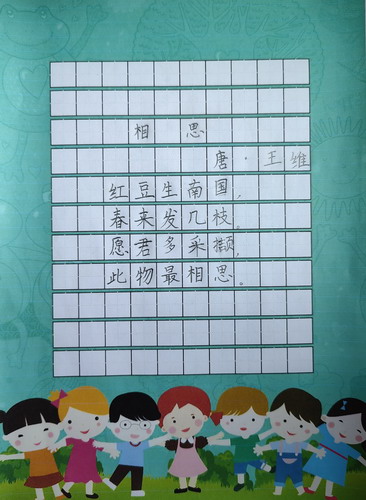 相思
唐·王维
红豆生南国,
春来发几枝。
愿君多采撷,
此物最相思。